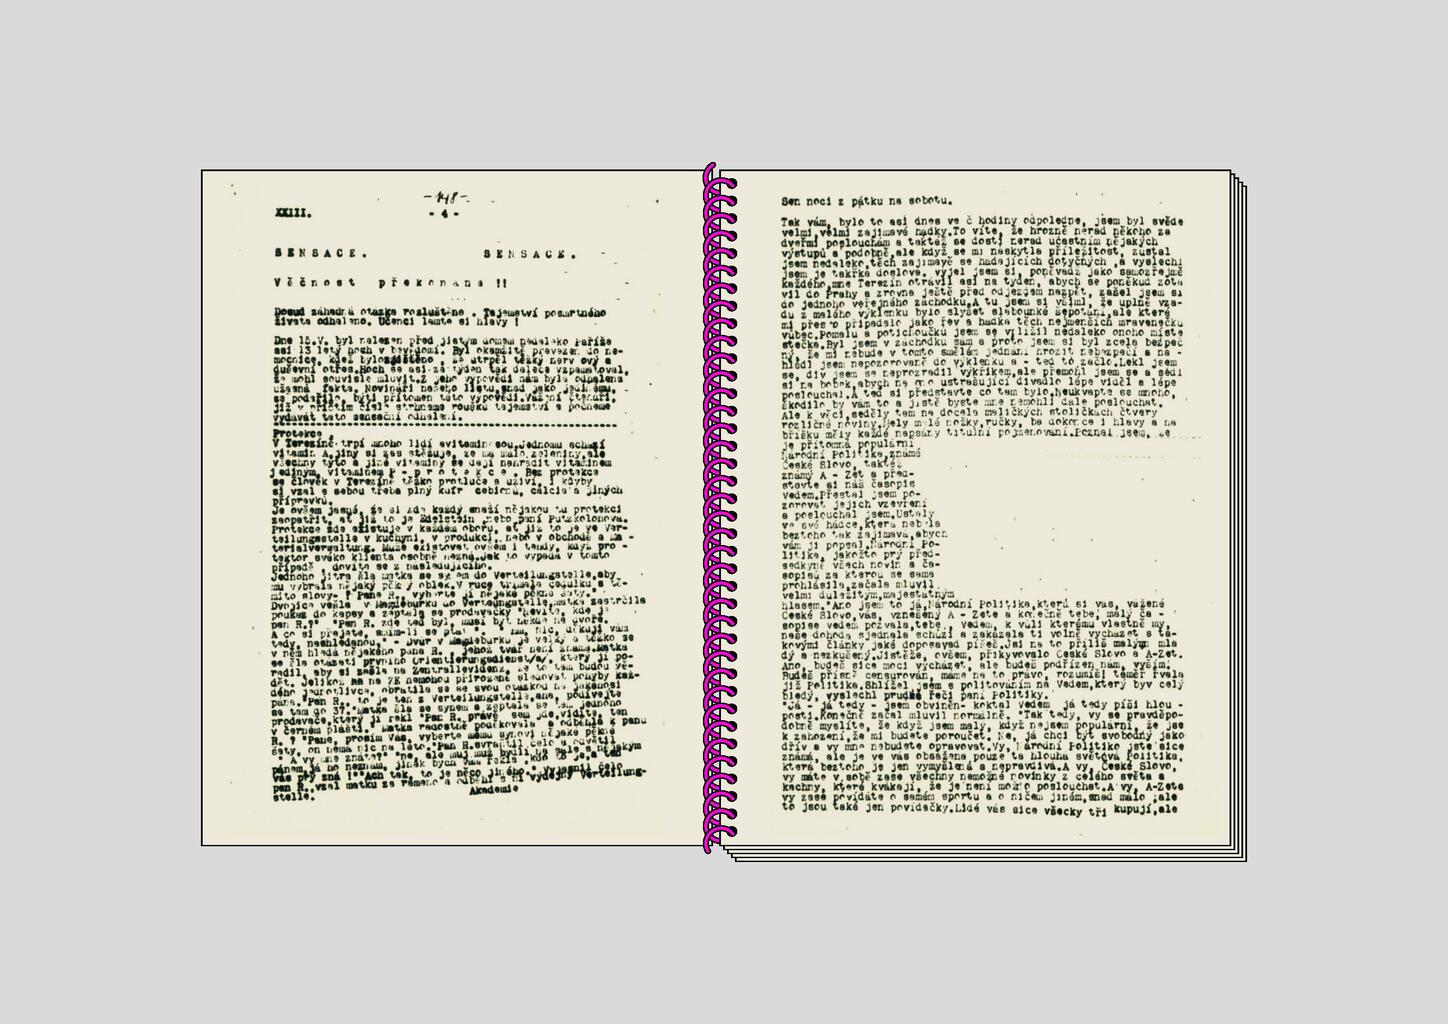 -148-
XXIII.
- 4 -
SENSACE. SENSACE.
Věčnost překonána !!
Dosud záhadná otázka rozluštěna . Tajemství posmrtného
života odhaleno. Učenci lámte si hlavy !
Dne 15.V. byl nalezen před jistým domem nedaleko Paříže
asi 13 letý hoch v bezvědomí. Byl okamžitě převezen do ne-
mocnice, kdež bylo zjištěno , že utrpěl těžký nerv ový a
duševní otřes.Hoch se asi za týden tak dalece vzpamatoval,
že mohl souvisle mluvit.Z jeho výpovědi nám byla odhalena
úžasná fakta. Novináři našeho listu,snad jako jedinému,
se podařilo, býti přítomen této výpovědi.Vážní čtenáři,
již v příštím čísle strhneme roušku tajemství a počneme
vydávat tato sensační odhalení.
Protekce
V Terezíně trpí mnoho lidí avitaminosou.Jednomu schází
vitamin A,jiný si zas stěžuje, že má málo zeleniny,ale
všechny tyto a jiné vitaminy se dají nahradit vitaminem
jediným, vitaminem P - p r o t e k c e . Bez protekce
se člověk v Terezíně těžko protluče a uživí, i kdyby
si vzal s sebou třeba plný kufr cebionu, calcia a jiných
přípravků.
Je ovšem jasné, že si zde každý snaží nějakou tu protekci
zaopatřit, ať již to je Edelstein ,nebo paní Putzkolonová.
Protekce zde existuje v každém oboru, ať již to je ve Ver-
teilungsstelle v kuchyni, v produkci, nebo v obchodě a Ma -
terialverwaltung. Může existovat ovšem i tehdy, když pro -
tektor svého klienta osobně nezná.Jak to vypadá v tomto
případě , dovíte se z následujícího.
Jednoho jitra šla matka se synem do Verteilungstelle,aby
mu vybrala nějaký pěkný oblek.V ruce třímala cedulku s tě-
mito slovy: " Pane R., vyberte jí nějaké pěkné šaty."
Dvojice vešla v Magdeburku do Verteilungstelle,matka zastrčila
poukaz do kapsy a zeptala se prodavačky "Nevíte, kde je
pan R.?" "Pan R. zde teď byl, musí být někde na dvoře.
A co si přejete, smím-li se ptát" " Hm, nic, děkuji vám
tedy, nashledanou." - Dvůr v Magdeburku je velký a těžko se
v něm hledá nějakého pana R. , jehož tvář není známa.Matka
se šla otázati prvního Orientierungsdienst/a/, který jí po-
radil, aby si zašla na Zentralevidenz, že to tam budou vě-
dět. Jelikož na ZE nemohou přirozeně sledovat pohyby kaž-
dého jednotlivce, obrátila se se svou otázkou na
pana."Pan R., to je ten z Verteilungstelle,ano, podívejte
se tam do 37."Matka šla se synem a zeptala se tam jednoho
prodavače,který jí řekl "Pan R. právě sem jde,vidíte, ten
v černém plášti." Matka radostně poděkovala a odběhla k panu
R. : "Pane, prosím Vás, vyberte mému synovi nějaké pěkné
šaty, on nemá nic na léto."Pan R.svraštil čelo a odvětil
" A vy mne znáte?" "Ne, ale můj muž bydlí na sále s nějakým
pánem,já ho neznám, jinak bych Vám řekla kdo to je,a ten
vás prý zná !""Ach tak, to je něco jiného." Vyjasnil čelo
pan R.,vzal matku za rameno a odběhl s ní výdejny Verteilung-
stelle.
Akademie
Sen noci z pátku na sobotu.
Tak vám, bylo to asi dnes ve č hodiny odpoledne, jsem byl svěde
velmi,velmi zajímavé hádky.To víte, že hrozně nerad někoho za
dveřmi poslouchám a taktéž se dosti nerad účastním nějakých
výstupů a podobně,ale když se mi naskytla příležitost, zůstal
jsem nedaleko,těch zajímavě se hádajících dotyčných ,a vyslechl
jsem je takřka doslova. vyjel jsem si, poněvadž jako samozřejmě
každého,mne Terezín otrávil asi na týden, abych se poněkud zota
vil do Prahy a zrovna ještě před odjezdem nazpět, zašel jsem si
do jednoho veřejného záchodku.A tu jsem si všiml, že úplně vza-
du z malého výklenku bylo slyšet slabounké šepotání,ale které
mi přesto připadalo jako řev a hádka těch nejmenších mravenečků
vůbec.Pomalu a potichoučku jsem se vplížil nedaleko onoho míste
stečka.Byl jsem v záchodku sám a proto jsem si byl zcela bezpeč
ný, že mi nebude v tomto smělém jednání hrozit nebezpečí a na -
hlédl jsem nepozorovaně do výklenku a - teď to začlo.Lekl jsem
se, div jsem se neprozradil výkřikem,ale přemohl jsem se a sedl
si na bobek,abych na ono ustrašující divadlo lépe viděl a lépe
poslouchal.A teď si představte co tam bylo.Neukvapte se mnoho,
škodilo by vám to a jistě byste mne nemohli dále poslouchat.
Ale k věci,seděly tam na docela maličkých stoličkách čtvery
rozličné noviny.Měly malé nožky,ručky, ba dokonce i hlavy a na
bříšku měly každé napsány titulní pojmenování.Poznal jsem, že
je přítomna populární
Národní Politika,známé
České Slovo, taktéž
známý A - Zet a před-
stavte si náš časopis
Vedem.Přestal jsem po-
zorovat jejich vzevření
a poslouchal jsem.Ustaly
ve své hádce,která nebyla
beztoho tak zajímavá,abych
vám ji popsal.Národní Po-
litika, jakožto prý před-
sedkyně všech novin a ča-
sopisů za kterou se sama
prohlásila,začala mluvil
velmi důležitým,majestátným
hlasem."Ano jsem to já,Národní Politika,která si vás, vážené
České Slovo,vás, vznešený A - Zete a konečně tebe, malý ča -
sopise vedem pozvala,tebe , Vedem, k vůli kterému vlastně my,
naše dohoda sjednala schůzi a zakázala ti volně vycházet s ta-
kovými články jaké doposavad píšeš.Jsi na to příliš malým mla
dý a nezkušený.Jistěže, ovšem, přikyvovalo České Slovo a A-Zet.
Ano, budeš sice moci vycházet, ale budeš podřízen nám, vyšším;
Budeš přísně censurován, máme na to právo, rozumíš! téměř řvala
již Politika.Shlížel jsem s politováním na Vedem,který byv celý
bledý, vyslechl prudké řeči paní Politiky.
"Já - já tedy - jsem obviněn- koktal Vedem já tedy píši hlou -
posti.Konečně začal mluvil normálně. "Tak tedy, vy se pravděpo-
dobně myslíte, že když jsem malý, když nejsem populární, že jse
k zahození,že mi budete poroučet. Ne, já chci být svobodný jako
dřív a vy mne nebudete opravovat.Vy, Národní Politiko jste sice
známá, ale je ve vás obsažena pouze ta hloupá světová Politika,
která beztoho je jen vymyšlená a nepravdivá.A vy, České Slovo,
vy máte v sobě zase všechny nemožné novinky z celého světa a
kachny, které kvákají, že je není možno poslouchat.A vy, A-Zete
vy zase povídáte o samém sportu a o ničem jiném,snad málo ,ale
to jsou také jen povídačky.Lidé vás sice všecky tři kupují,ale